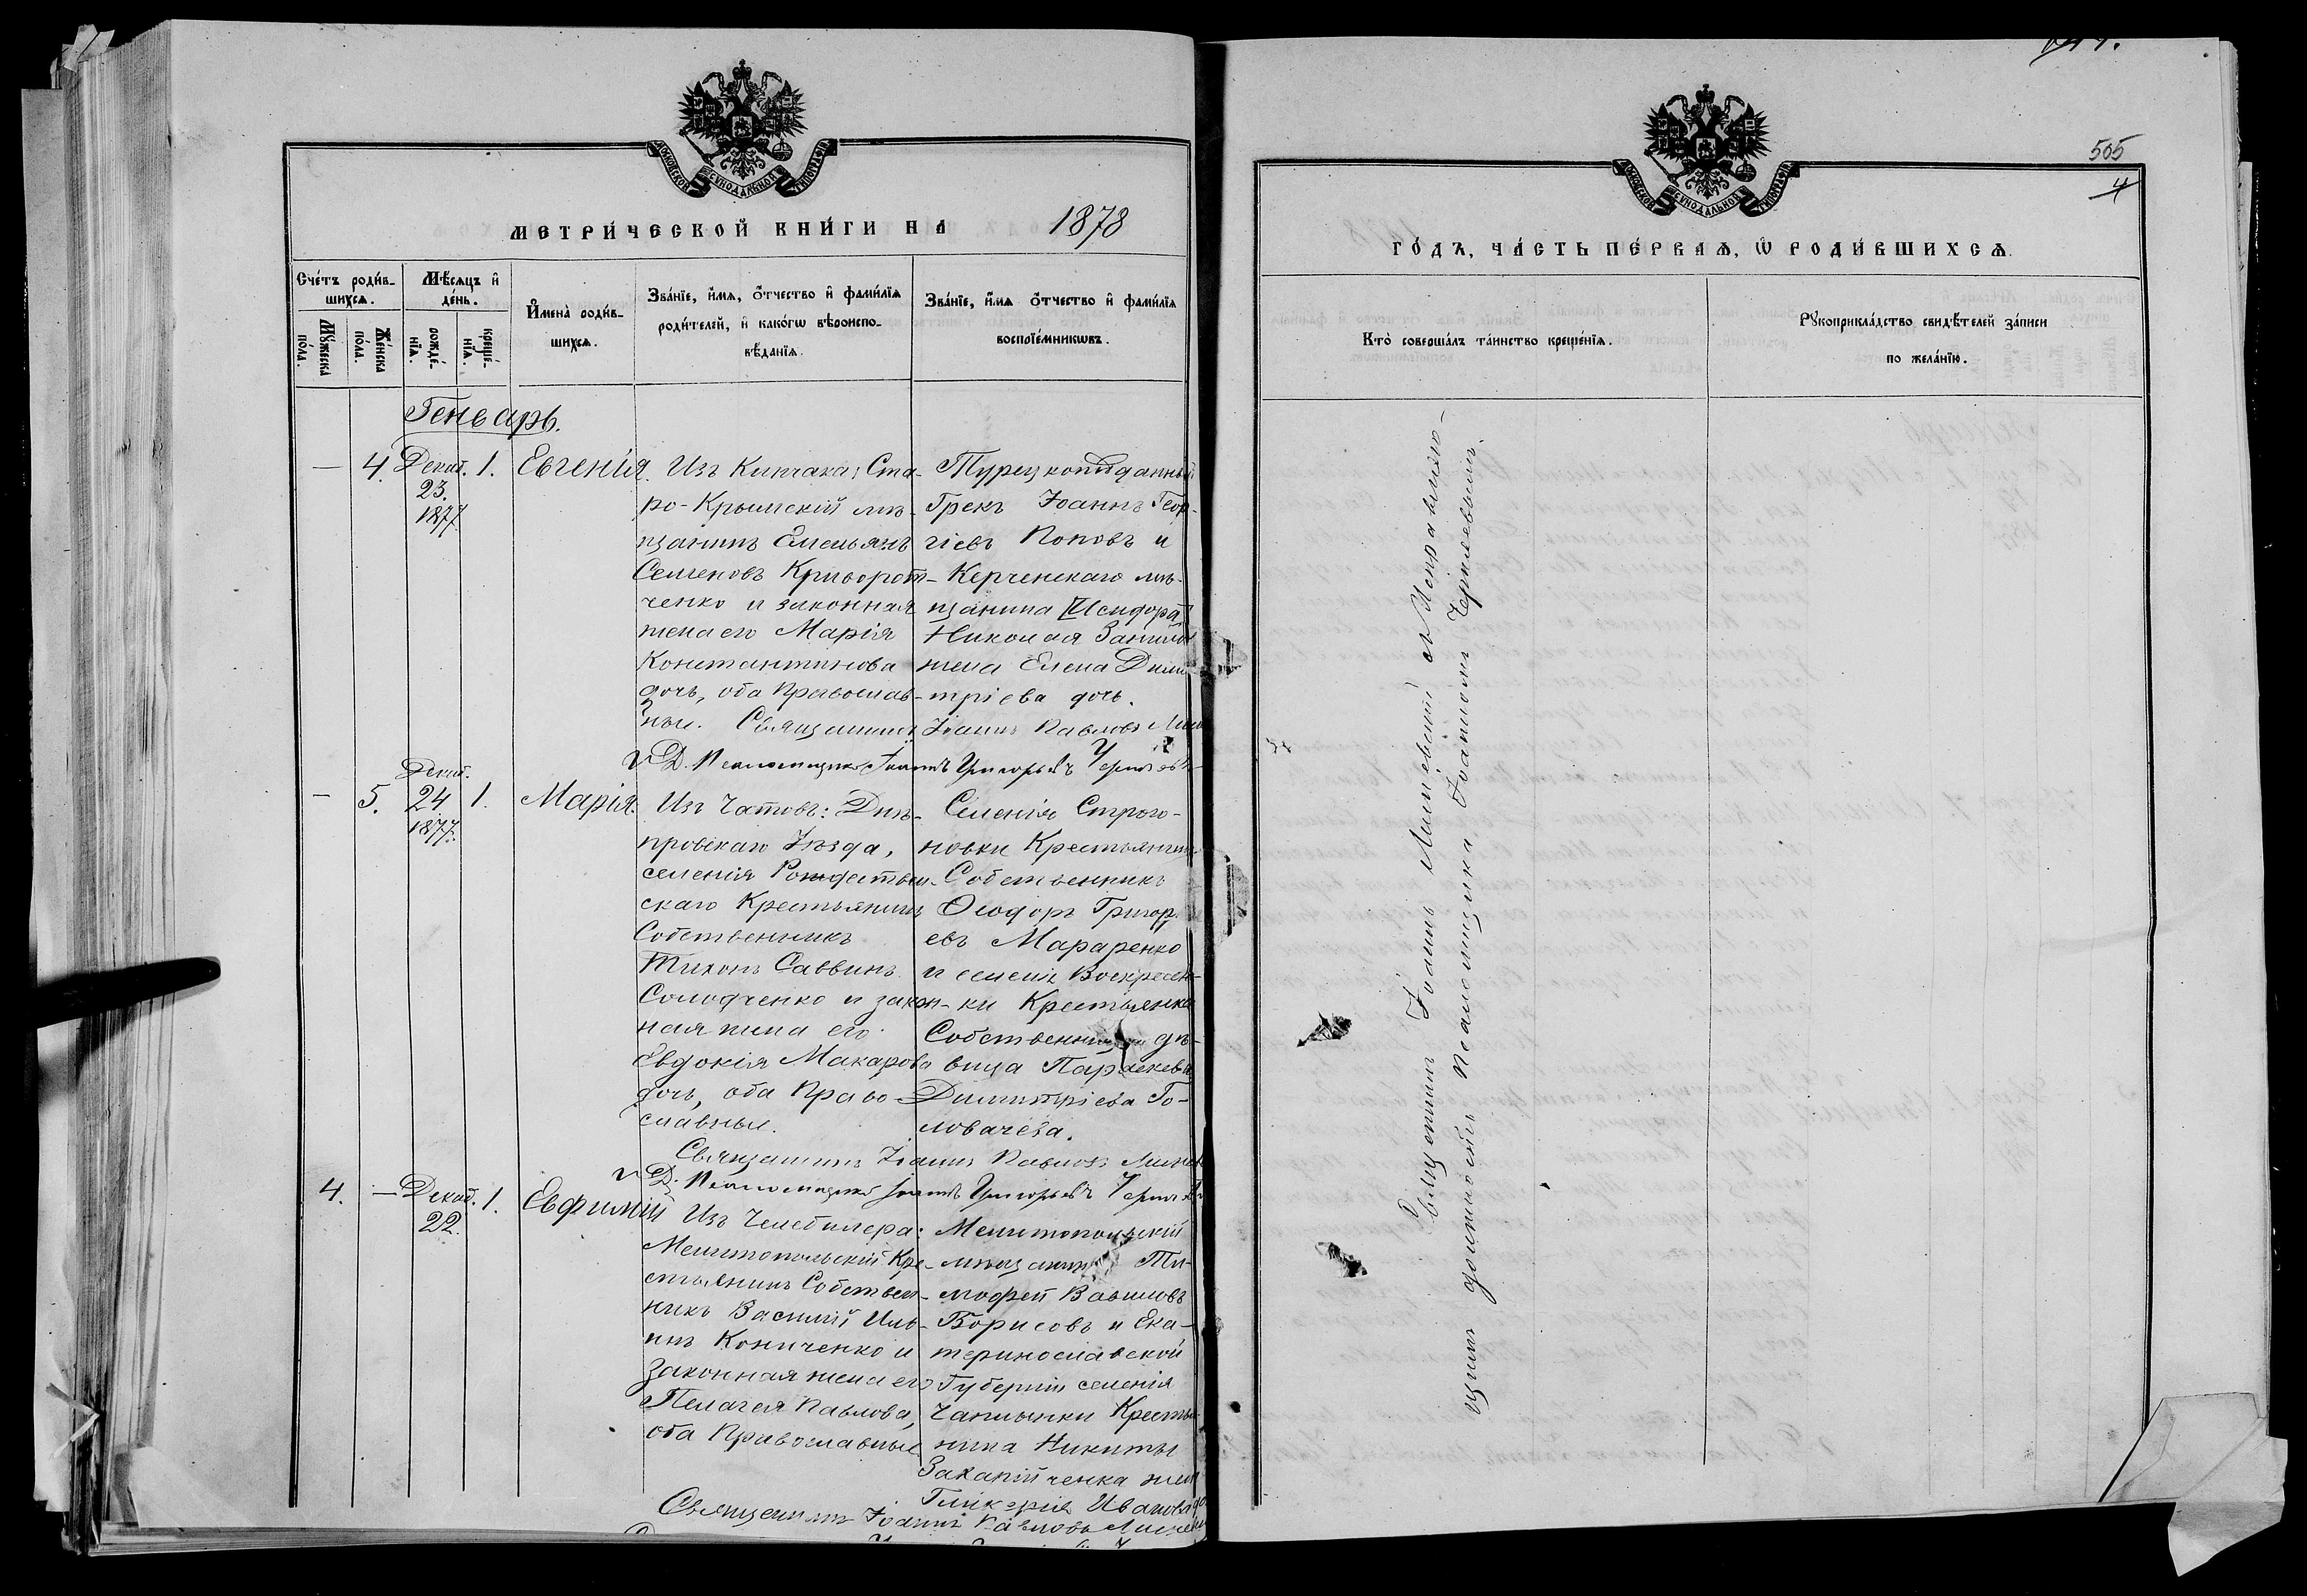 МОСКОВСКОЙ СѴНОДАЛЬНОЙ ТИПОГРАФІИ
МЕТРИ́ЧЕСКОЙ КНИ́ГИ НА 1878
Сче́тъ роди́в-
шихсѧ.
Мѣ́сѧцъ и҆
де́нь.
И҆мена̀ роди́в-
шихсѧ.
Зва́нїе, и҆́мѧ, ѻ҆́тчество и҆ фами́лїѧ
роди́телей, и҆ како́гѡ вѣроиспо-
вѣ́данїѧ.
Зва́нїе, и҆́мѧ ѻ҆́тчество и҆ фами́лїѧ
воспрїе́мникѡвъ.
Мꙋ́жеска
по́ла.
Же́нска
по́ла.
рожде́-
нїѧ.
креще́-
нїѧ.
Генварь.
— 4. Декаб. 1. Евгенія.
23.
1877
Изъ Кипчака; Ста-
ро-Крымскій мѣ-
щанинъ Емельянъ
Семеновъ Криворот-
ченко и законная
жена его Марія
Константинова
дочь, оба Православ-
ные.
Турецкоподданный
Грекъ Іоаннъ Геор-
гіевъ Поповъ и
Керченскаго мѣ-
щанина [Исидора]
Николая
жена Елена Дими-
тріева дочь.
Священникъ Іоаннъ Павловъ
И. Д. Псаломщика Іоаннъ Григорьевъ
— 5. Декаб. 1. Марія.
24
1877.
Изъ Чатовъ: Днѣ-
провскаго Уѣзда,
селенія Рождествен-
скаго Крестьянинъ
Собственникъ
Тихонъ Саввинъ
Солодченко и закон-
ная жена его
Евдокія Макарова
дочь, оба Право-
славные.
Селенія Строго-
новки Крестьянинъ
Собственникъ
Ѳеодоръ Григор-
евъ Мараренко
и селенія Воскресен-
ки Крестьянка
дѣ-
вица Параскева
Димитріева Го-
ловачева.
Священникъ Іоаннъ Павловъ
И. Д. Псаломщика Іоаннъ Григорьевъ
4. — Декаб. 1. Евфимій
22.
Изъ Челебилера:
Мелитопольскій Кре-
стьянинъ Собствен-
никъ Василій Иль-
инъ Кониченко и
законная жена его
Пелагея Павлова,
оба Православные
Мелитопольскій
мѣщанинъ Ти-
мофей Вавиловъ
Борисовъ и Ека-
теринославской
Губерніи селенія
Чаплынки Крестья-
нина Никиты
Захапійченка жена
Гликерія Иванова
Священникъ Іоаннъ Павловъ
505
4
МОСКОВСКОЙ СѴНОДАЛЬНОЙ ТИПОГРАФІИ
ГО́ДЪ, ЧА́СТЬ ПЕ́РВАѦ, Ѡ҆ РОДИ́ВШИХСѦ.
Кто̀ соверша́лъ та́инство креще́нїѧ.
Рꙋкоприкла́дство свидѣ́телей за́писи
по жела́нїю.
Священникъ Іоаннъ съ Исправляю-
щимъ должность Псаломщика Іоанномъ